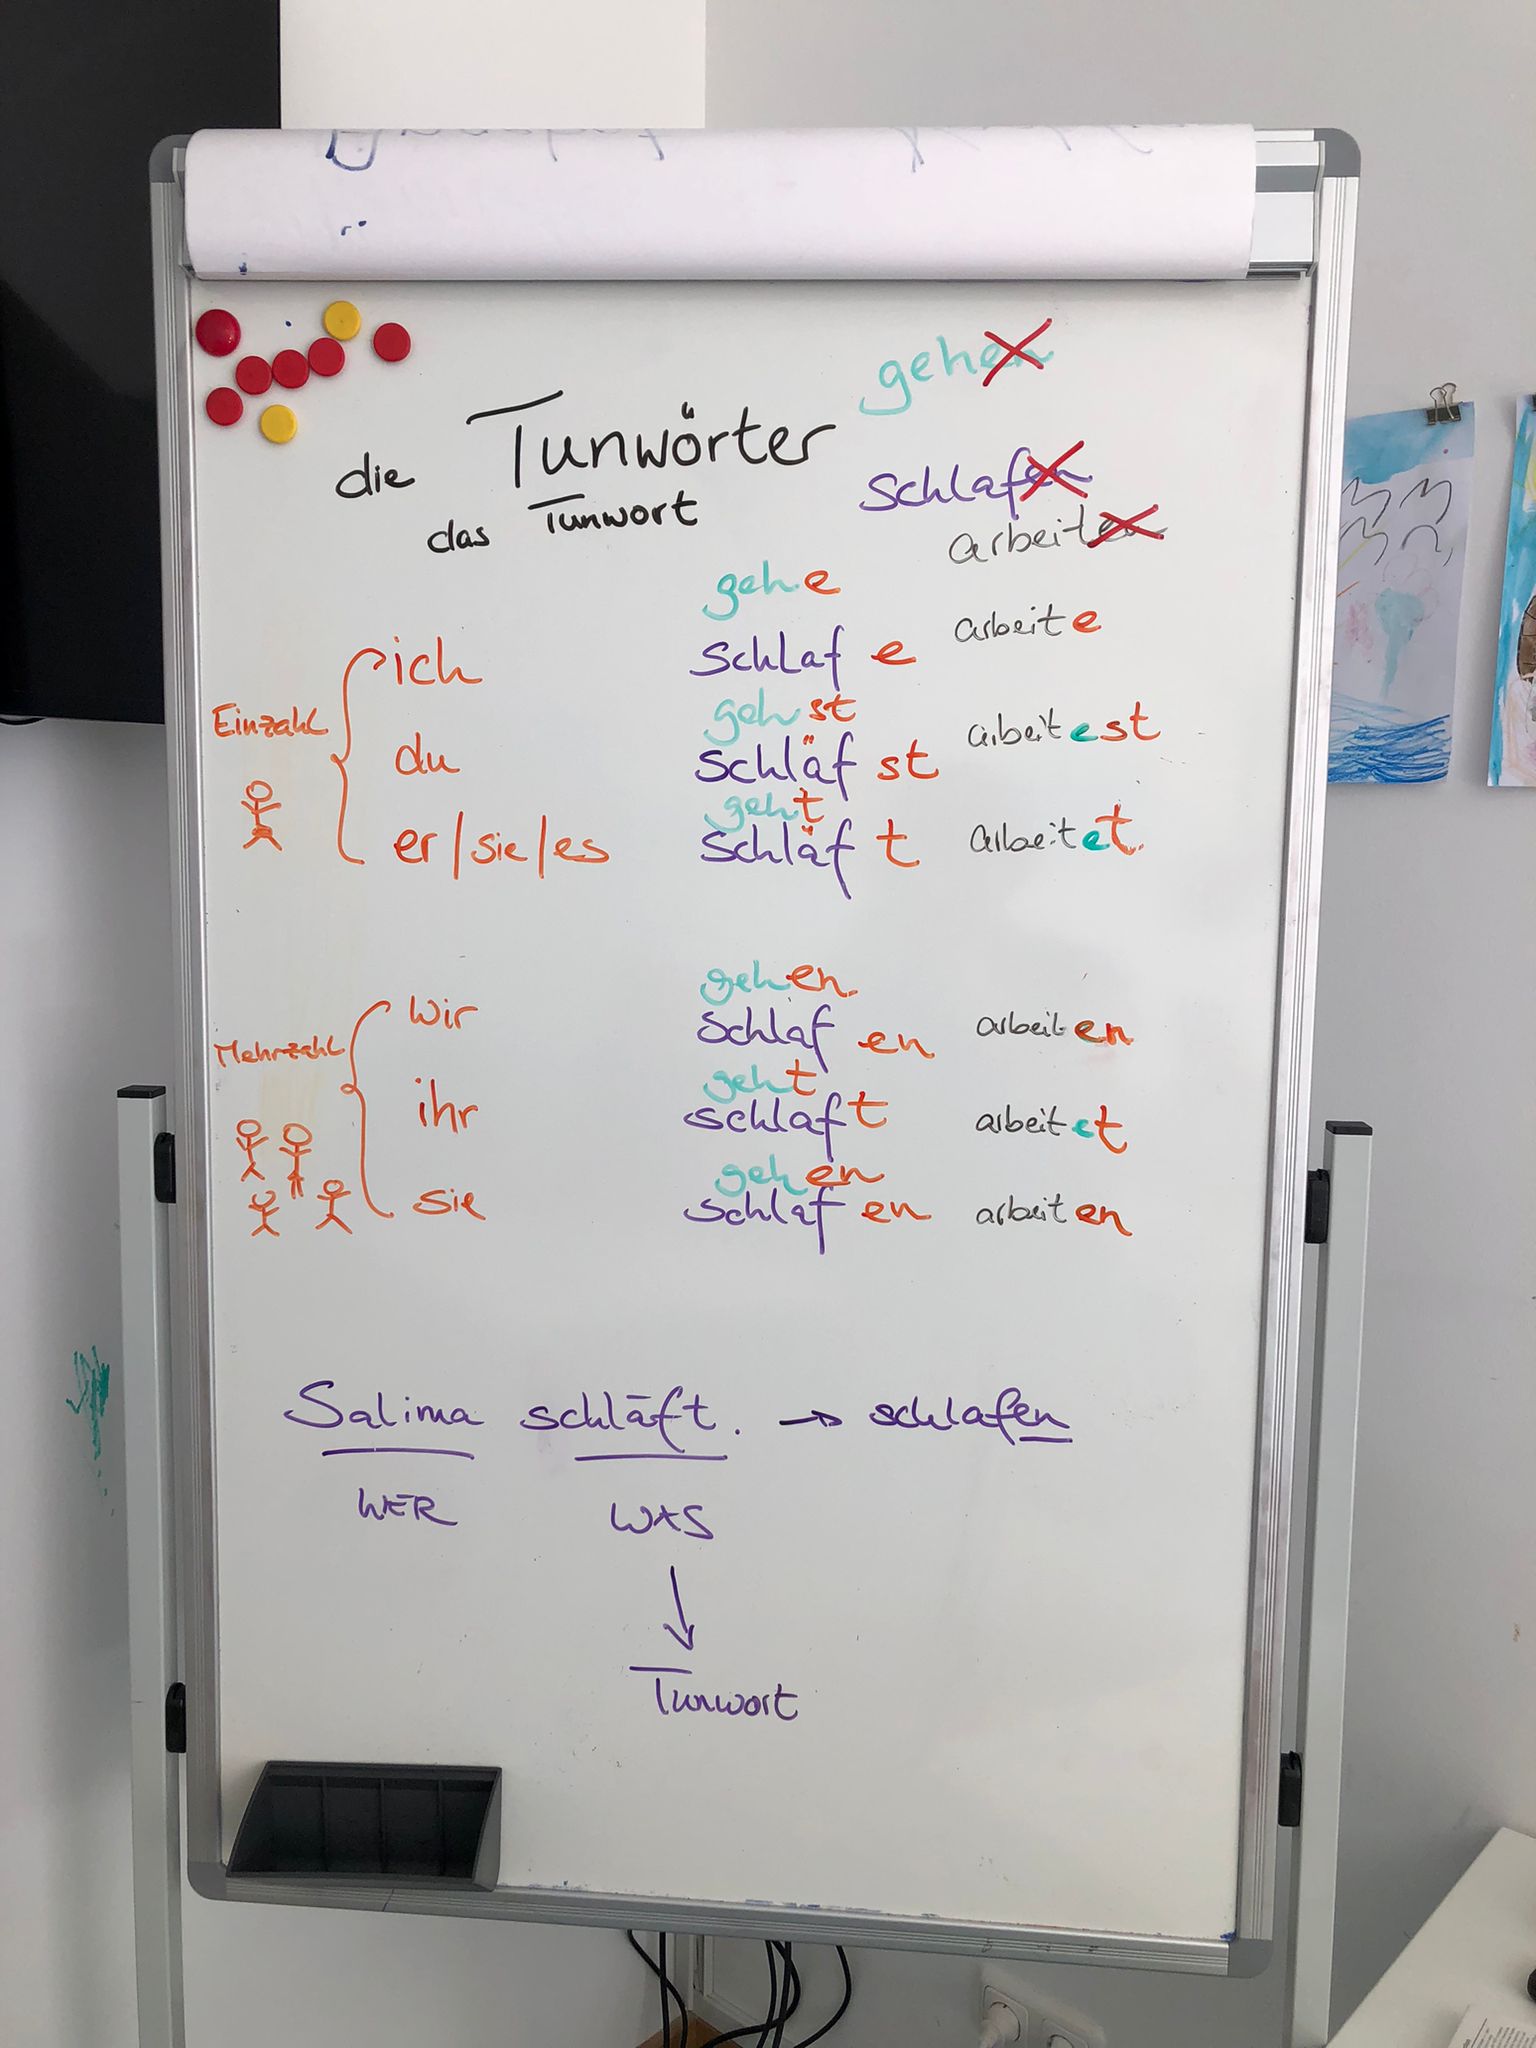 gehen
die Tunwörter
das Tunwort
schlafen
arbeiten
gehe
arbeite
ich schlafe
gehst
Einzahl
arbeitest
du schläfst
geht
er/sie/es schläft arbeitet.
gehen
wir schlafen arbeiten
Mehrzahl
geht
ihr schlaft arbeitet
gehen
sie schlafen arbeiten
Salima schläft. → schlafen
WER WAS
Tunwort